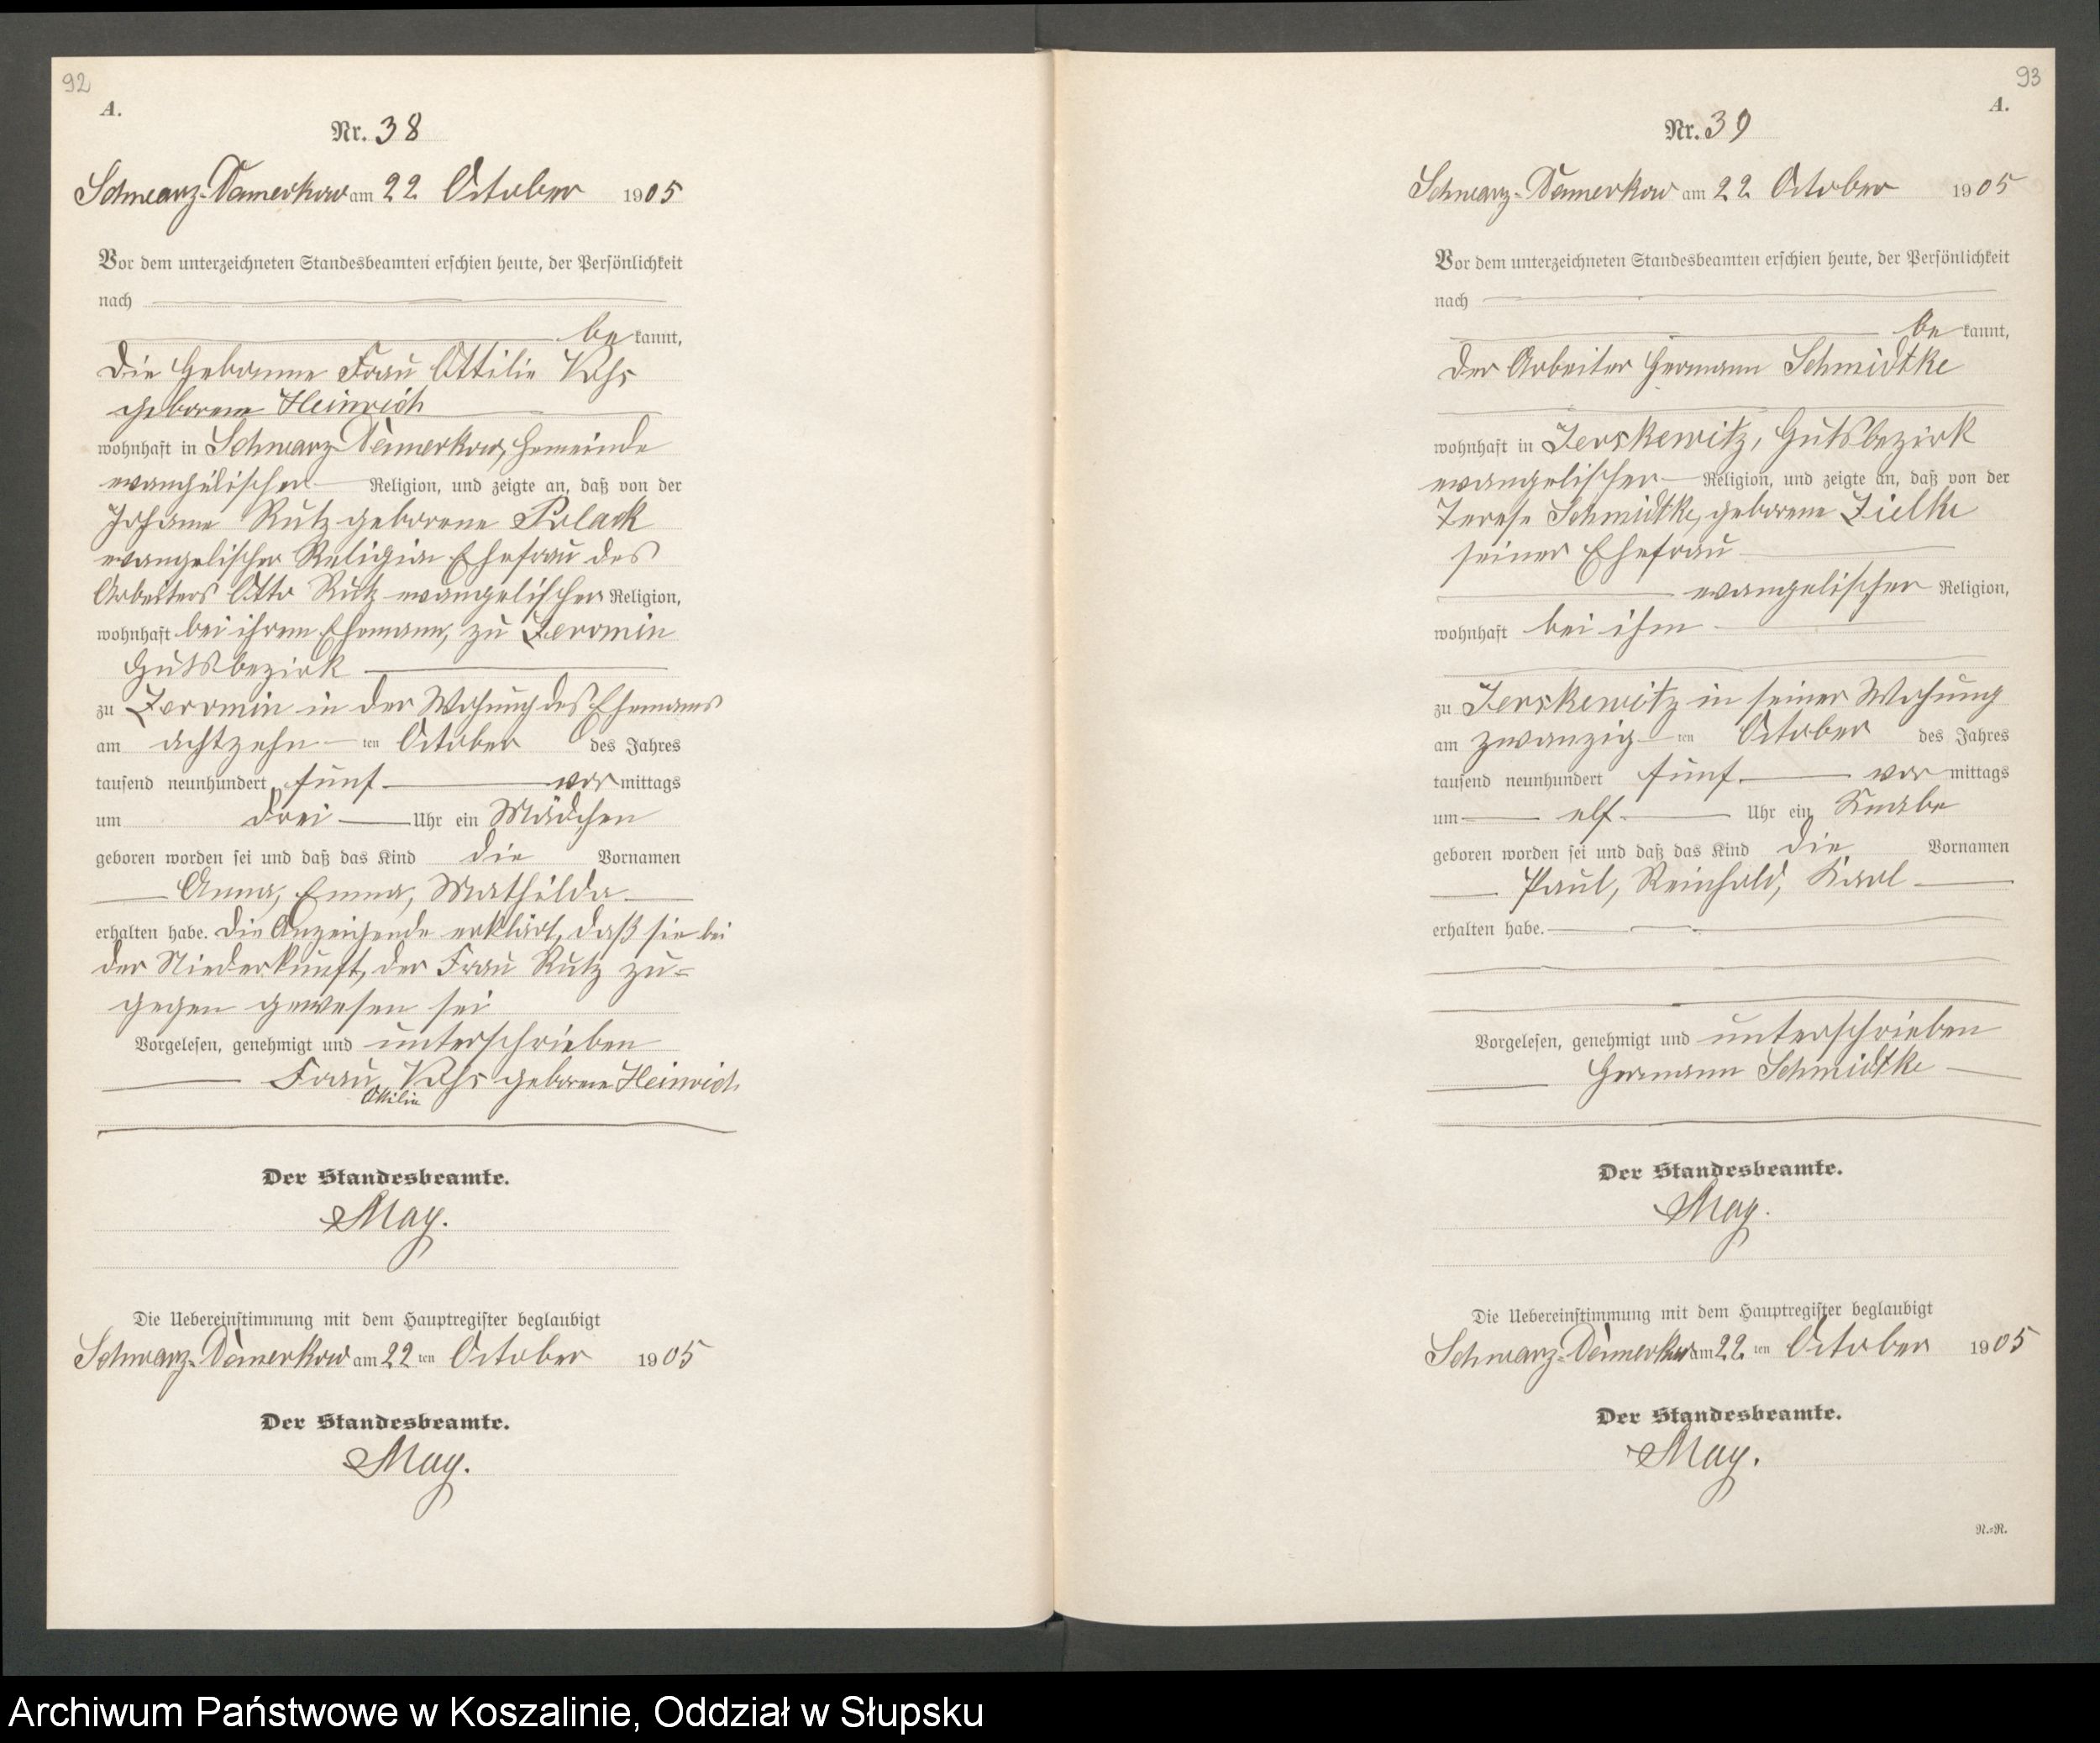 92
A.
Nr. 38
Schwarz-Damerkow am 22 October 1905
Vor dem unterzeichneten Standesbeamten erschien heute, der Persönlichkeit
nach
be kannt,
die Hebamme Frau Ottilie
geborene Heinrich
wohnhaft in Schwarz Damerkow, Gemeinde
evangelischer Religion, und zeigte an, daß von der
Johanne Rutz geborene Polack
evangelischer Religion Ehefrau des
Arbeiters Otto Rutz evangelischer Religion,
wohnhaft bei ihrem Ehemann, zu Zeromin
Gutsbezirk
zu Zeromin in der Wohung des Ehemanns
am achtzehn ten October des Jahres
tausend neunhundert fünf vor mittags
um drei Uhr ein Mädchen
geboren worden sei und daß das Kind die Vornamen
Anna, Emma, Mathilda
erhalten habe. Die Anzeigende erklärt, daß sie bei
der Niederkunft, der Frau Rutz zu=
gegen gewesen sei
Vorgelesen, genehmigt und unterschrieben
Frau geborene Heinrich
Ottilie
Der Standesbeamte.
May.
Die Uebereinstimmung mit dem Hauptregister beglaubigt
Schwarz-Damerkow am 22 ten October 1905
Der Standesbeamte.
May.
93
A.
Nr. 39
Schwarz-Damerkow am 22 October 1905
Vor dem unterzeichneten Standesbeamten erschien heute, der Persönlichkeit
nach
be kannt,
der Arbeiter Hermann Schmidtke
wohnhaft in Jerskewitz, Gutsbezirk
evangelischer Religion, und zeigte an, daß von der
Terese Schmidtke, geborene Zielke
seiner Ehefrau
evangelischer Religion,
wohnhaft bei ihm
zu Jerskewitz in seiner Wohung
am zwanzig ten October des Jahres
tausend neunhundert fünf vor mittags
um elf Uhr ein Knabe
geboren worden sei und daß das Kind die Vornamen
Paul, Reinhold, Karl
erhalten habe.
Vorgelesen, genehmigt und unterschrieben
Hermann Schmidtke
Der Standesbeamte.
May.
Die Uebereinstimmung mit dem Hauptregister beglaubigt
Schwarz-Damerkow am 22 ten October 1905
Der Standesbeamte.
May.
N.=R.
Archiwum Państwowe w Koszalinie, Oddział w Słupsku